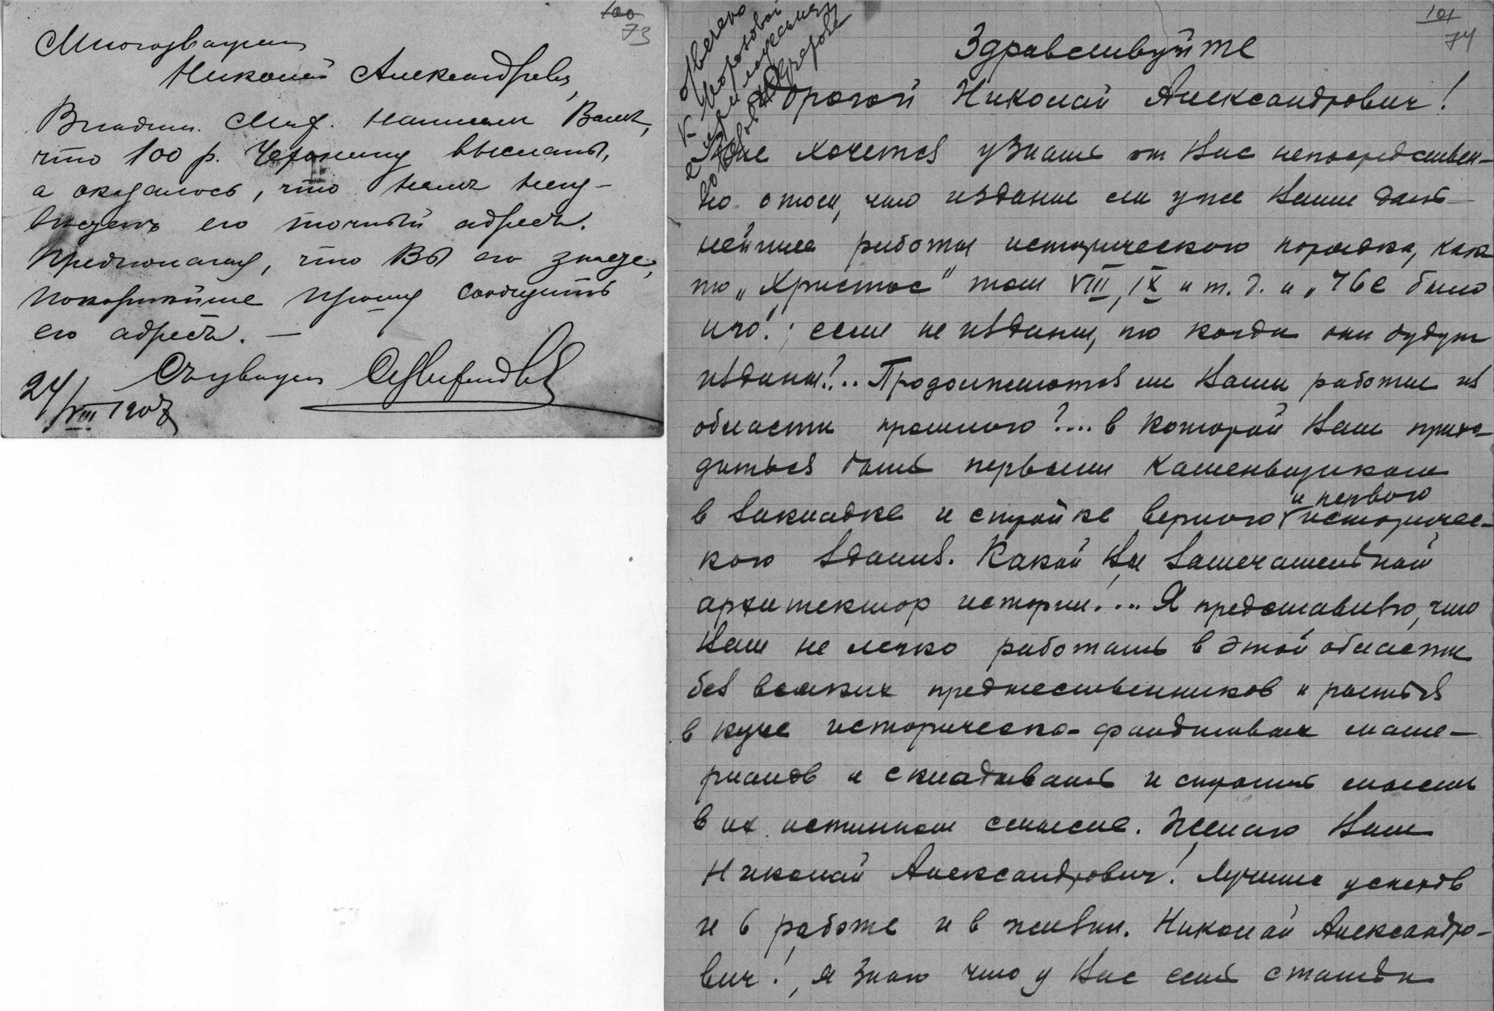 100
73
Многоуважаем
Николай Александрович,
Владим. Мих. написал Вамъ,
что 100 р. высланы,
а оказалось, что намъ неиз-
вѣстенъ его точный адресъ.
Предполагая, что Вы его знаете,
покорнѣйше прошу сообщить
его адресъ. —
С уважен
24/VIII 1907
101
74
Здравствуйте
Дорогой Николай Александрович!
Мне хочется узнать от Вас непосредствен-
но о том, что изданы ли уже Ваши даль-
нейшие работы исторического порядка, как
то „Христос" том VIII, IX и т. д. и
если не изданы, то когда они будут
изданы!?.. Продолжаются ли Ваши работы из
области прошлого?.... в которой Вам прихо-
диться быть первым каменьщиком
в закладке и стройке верного и первого историчес-
кого здания. Какой Вы замечательной
архитектор истории!... Я представляю, что
Вам не легко работать в этой области
без всяких предшественников и рыться
в куче историческо-фальшивых мате-
риалов и складывать и строить мысли
в их истинном смысле. Желаю Вам
Николай Александрович! Лучших успехов
и в работе и в жизни. Николай Александро-
вич!, я знаю что у Вас есть статьи